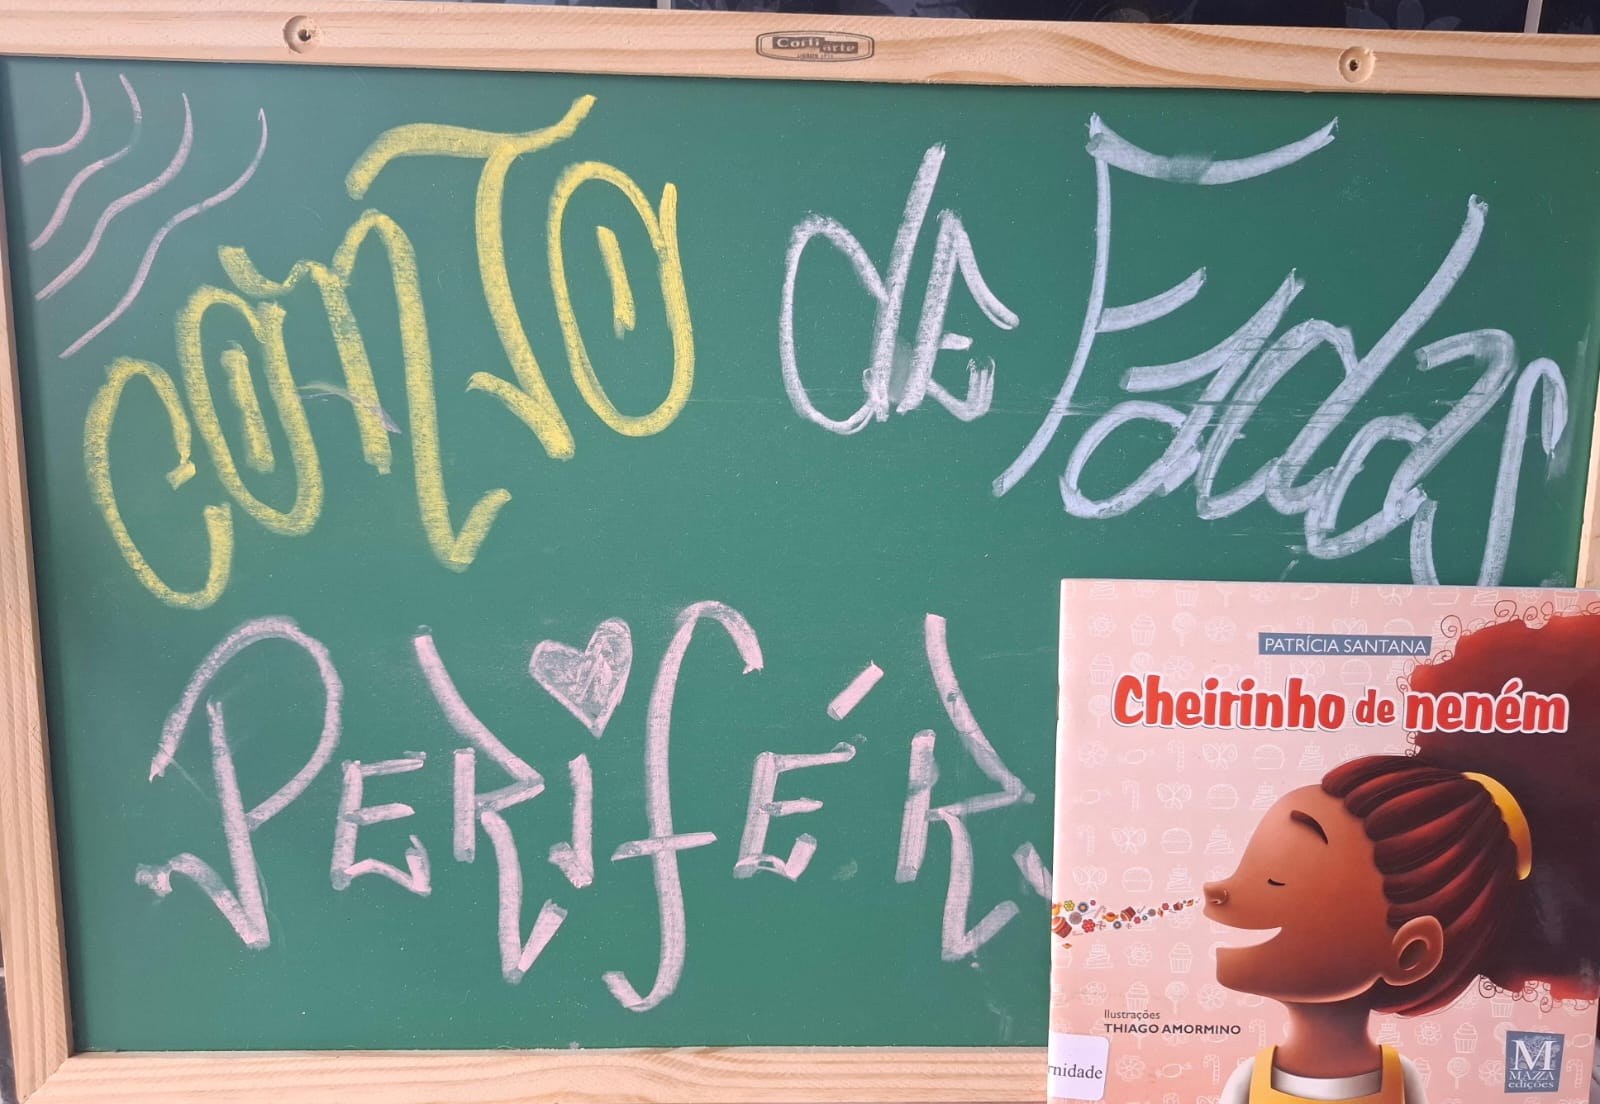 Corti arte
CONTO de Fadas
PERIFÉR
PATRÍCIA SANTANA
Cheirinho de neném
Ilustrações
THIAGO AMORMINO
rnidade
M
MAZZA
edições